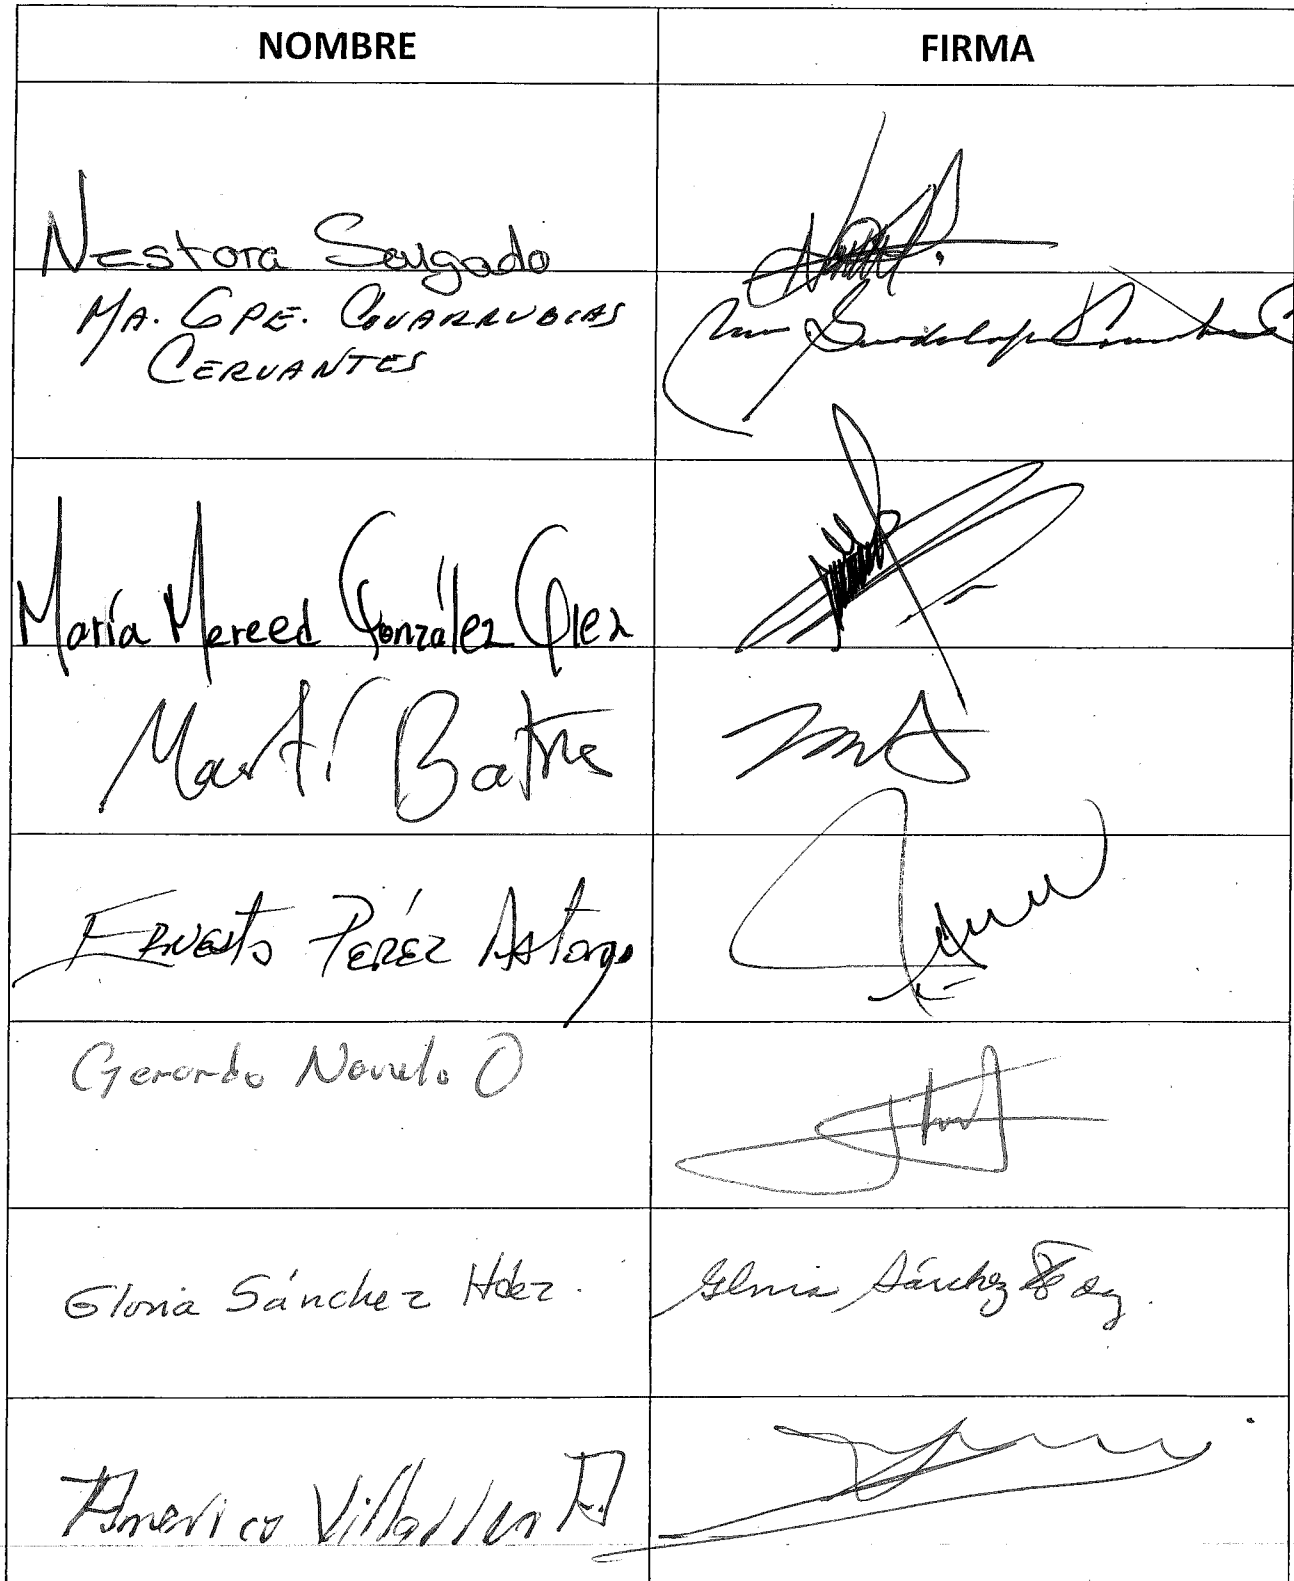 NOMBRE FIRMA
Nestora Salgado
MA. GPE. COVARRUBIAS
CERVANTES
María Merced González Glez
Martí Batres
ERNESTO PÉREZ Astorga
Gerardo Novelo O
Gloria Sánchez Hdez. Gloria Sánchez
Américo Villarreal A.